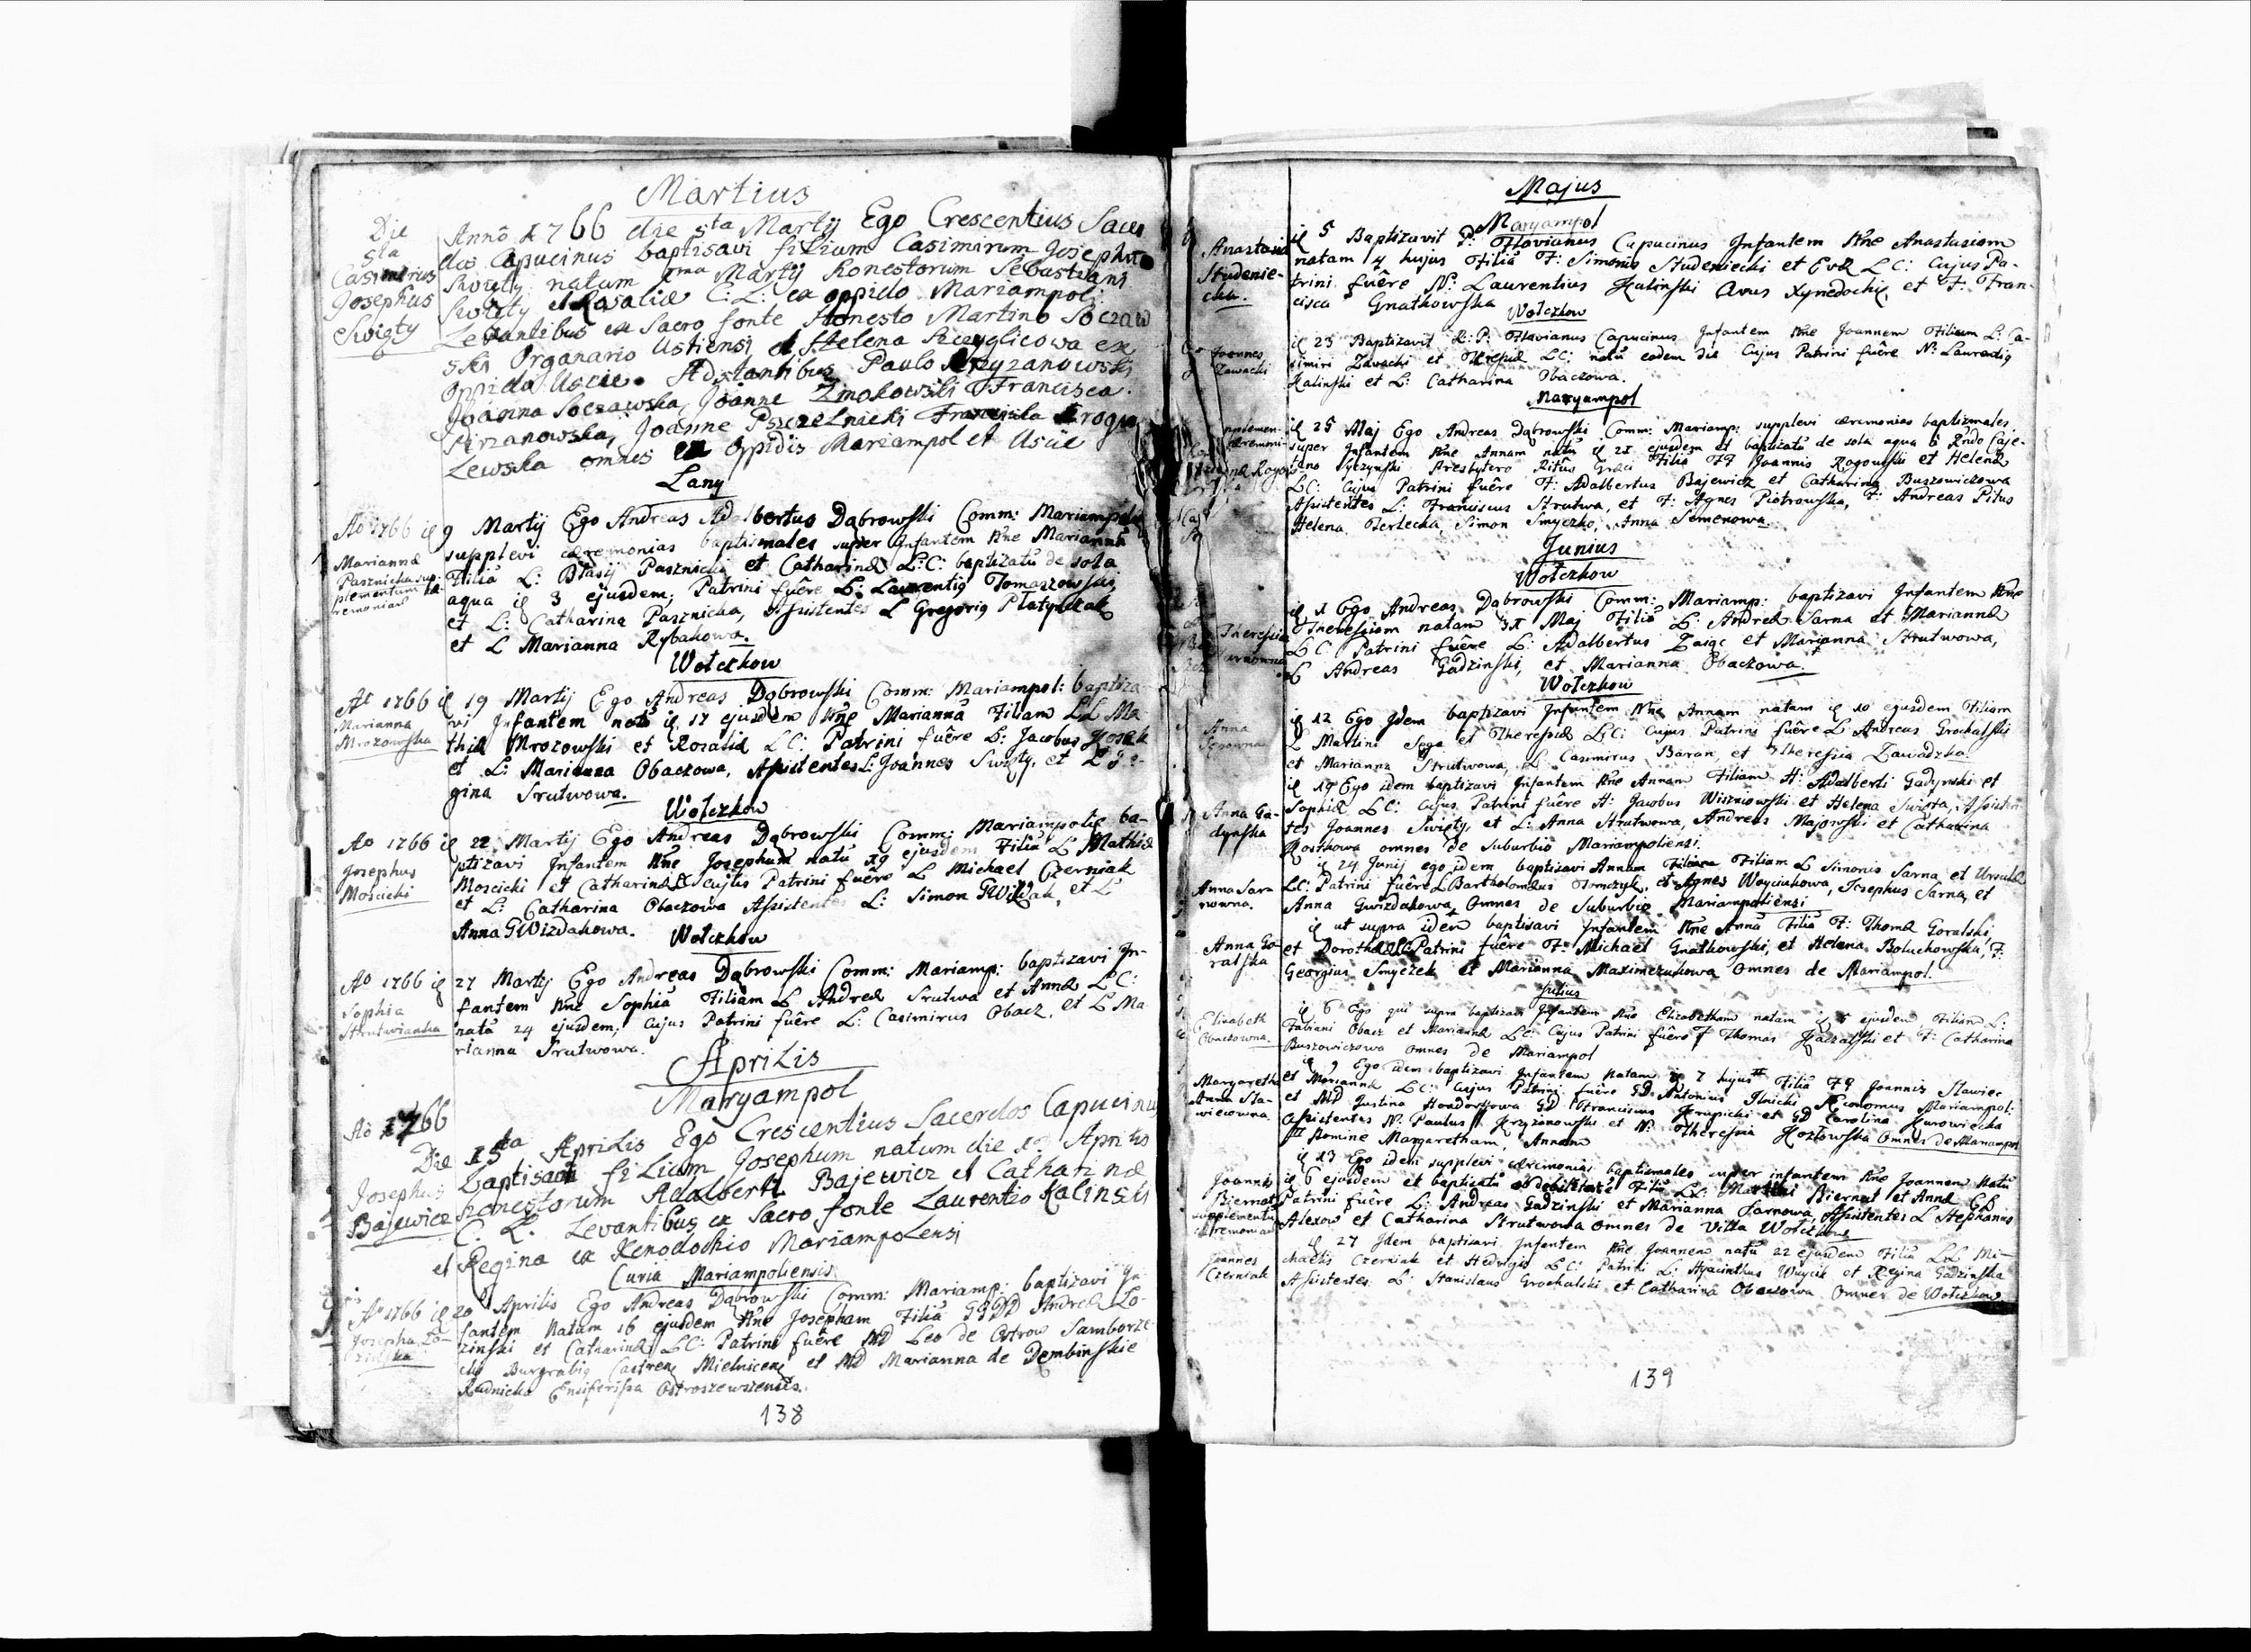 Martius
Die
5ta
Casimirus
Josephus
Swięty
Annô 1766 die 5ta Martij Ego Crescentius Sacer
dos Capucinus baptisavi filium Casimirum Josephum
Swięty natum 1ma Martij Honestorum Sebastiani
Swięty et Rosaliæ C: L: ex oppido Mariampoli.
Levantibus ex Sacro fonte Honesto Martino Soczaw
ski Organario Ustiensi et Helena Szczyglicowa ex
oppido Uscie. Adstantibus Paulo Krzyzanowski
Joanna Soczawska, Joanne Zmokowski Francisca
Joanne Pszczelnicki Francisca
zewska omnes ex oppidis Mariampol et Uscie
Lany
Ao 1766 ie
Marianna
Pasznicka sup-
plementum cæ-
remoniar
9 Martij Ego Andreas Adalbertus Dąbrowski Comm: Mariampolis
supplevi cæremonias baptismales super Infantem Nne Mariannã
Filiã L: Blasij Pasznicki et Catharinæ L:C: baptizatũ de sola
aqua ie 3 ejusdem; Patrini fuêre L: Laurentiq Tomaszowski
et L: Catharina Pasznicka, Assistentes L Gregoriq Platyniak
et L Marianna Rybakowa.
Wołczkow
Ao 1766 ie
Marianna
Mrozowska
19 Martij Ego Andreas Dąbrowski Comm: Mariampol: baptiza
vi Infantem natã ie 17 ejusdem Nne Mariannã Filiam LL Ma
thiæ Mrozowski et Rosaliæ LC: Patrini fuêre L: Jacobus
et L: Marianna Obaczowa, Assistentes L: Joannes Swięty, et L Re-
gina Srutwowa.
Wołczkow
Ao 1766 ie
Josephus
Moscicki
22 Martij Ego Andreas Dąbrowski Comm: Mariampolis ba-
ptizavi Infantem Nne Josephum natũ 19 ejusdem Filiũ L Mathiæ
Moscicki et Catharinæ LC cujus Patrini fuêre L Michael Czerniak
et L: Catharina Obaczowa Assistentes L: Simon GWizdak, et L
Anna GWizdakowa.
Wołczkow
Ao 1766 ie
Sophia
Strutwianka
27 Martij Ego Andreas Dąbrowski Comm: Mariamp: baptizavi In-
fantem Nne Sophiã Filiam L Andreæ Srutwa et Annæ LC:
natã 24 ejusdem; Cujus Patrini fuêre L: Casimirus Obacz, et L Ma
rianna Srutwowa.
Aprilis
Maryampol
Aô 1766
Die
Josephus
Bajewicz
15ta Aprilis Ego Crescentius Sacerdos Capucinus
baptisavi filium Josephum natum die Aprilis
Honestorum Adalberti Bajewicz et Catharinæ
C. L. Levantibus ex Sacro fonte Laurentio Kalinski
et Regina ex Xenodochio Mariampolensi
Curia Mariampoliensis
Ao 1766 ie
Josepha Ło-
zinska
20 Aprilis Ego Andreas Dąbrowski Comm: Mariamp: baptizavi In-
fantem Natam 16 ejusdem Nne Josepham Filiã GGDD Andreæ Ło-
zinski et Catharinæ LC: Patrini fuêre MD Leo de Ostrow Samborze
cki Burgrabiq Castren Mielnicen et MD Marianna de Dembinskie
Rudnicka Ensiferissa Ostroszewszensis.
138
Majus
Maryampol
Anastasia
Studenie-
cka.
ie 5 Baptizavit P: Flovianus Capucinus Infantem Nne Anastasiam
natam 4 hujus Filiã F: Simonis Studeniecki et Evæ LC: Cujus Pa-
trini fuêre N: Laurentius Kalinski Avus Xynedochij, et F: Fran-
cisca Gnatkowska
Wołczkow
Joannes
Zawacki
ie 23 Baptizavit R: P: Flovianus Capucinus Infantem Nne Joannem Filium L: Ca-
simiri Zawacki et Theresiæ LC: natũ eodem die Cujus Patrini fuêre N: Laurentiq
Kalinski et L: Catharina Obaczowa.
Maryampol
ie 25 Maj Ego Andreas Dąbrowski Comm: Mariamp: supplevi cæremonias baptizmales
super Infantem Nne Annam natã ie 21 ejusdem et baptizatã de sola aqua â Rndo Caje-
tano Presbytero Ritûs Græci Filiã FF Joannis Rogowski et Helenæ
LC: Cujus Patrini fuêre F: Adalbertus Bajewicz et Catharina Buszowiczowa
Assistentes L: Franciscus Strutwa, et F: Agnes Piotrowska, F: Andreas Pitus
Helena Terlecka Simon Smyczko, Anna Semenowa.
Junius
Wołczkow
Theressia
Sarnowna
ie 1 Ego Andreas Dąbrowski Comm: Mariamp: baptizavi Infantem Nne
Theressiam natam 31 Maj Filiã L: Andreæ Sarna et Mariannæ
LC Patrini fuêre L: Adalbertus Zaiąc et Marianna Strutwowa,
L Andreas Gadzinski, et Marianna Obaczowa.
Wołczkow
Anna
Segowna
ie 12 Ego Idem baptizavi Infantem Nne Annam natam ie 10 ejusdem Filiam
L Martini Sega et Theresiæ LC: Cujus Patrini fuêre L Andreas Grochalski
et Marianna Strutwowa, L Casimirus Baran, et Theressia Zawadzka.
Anna Ga-
dynska
ie 19 Ego idem baptizavi Infantem Nne Annam Filiam H: Adalberti Gadynski et
Sophiæ LC: Cujus Patrini fuêre H: Jacobus Wiszniowski et Helena Swięta, Assisten-
tes Joannes Swięty, et L: Anna Strutwowa, Andreas Majowski et Catharina
Kostkowa omnes de Suburbio Mariampoliensi.
Anna Sar-
nowna.
ie 24 Junij ego idem baptizavi Annam Filiam L Simonis Sarna et Ursulæ
LC: Patrini fuêre L Bartholomæus Tomczyk, et Agnes Woyciukowa, Josephus Sarna, et
Anna Gwizdakowa Omnes de Suburbio Mariampoliensi
Anna Go-
ralska
ie ut supra idem baptisavi Infantem Nne Annã Filiã F: Thomæ Goralski
et Dorotheæ LC Patrini fuêre F: Michael Gnatkowski, et Helena Boluchowska, F:
Georgius Smyczek et Marianna Maximczukowa Omnes de Mariampol.
Julius
Elizabeth
Obaczowna
ie 6 Ego qui supra baptizavi Infantem Nne Elizabetham natam ie 5 ejusdem Filiam L:
Fabiani Obacz et Mariannæ LC: Cujus Patrini fuêre F Thomas Kaczalski et F: Catharina
Buszowiczowa Omnes de Mariampol
Margaretha
Anna Sta-
wiecowna
ie 9 Ego idem baptizavi Infantem natam ie 7 hujus Filiã FF Joannis Stawiec
et Mariannæ LC: Cujus Patrini fuêre GD Antonius Ilnicki Æconomus Mariampol:
et MD Justina GD Franciscus Krupicki et GD Carolina Kurowiecka
Assistentes N: Paulus Krzyzanowski et N: Theressia Kozłowska Omnes de Mariampol
Nomine Margaretham, Annam
Joannes
Biernat
supplementũ
cæremoniar
ie 13 Ego idem supplevi cæremonias baptismales super infantem Nne Joannem natũ
ie 6 ejusdem et baptizatũ Filiũ LL: Martini Biernat et Annæ CL
Patrini fuêre L: Andreas Gadzinski et Marianna Sarnowa, Assistentes L Stephanus
Alexow et Catharina Strutwowa Omnes de Villa Wołczkow
Joannes
Czerniak
ie 27 Idem baptisavi Infantem Nne Joannem natũ 22 ejusdem Filiũ LL Mi-
chaelis Czerniak et Hedvigis LC: Patrini L: Hyacinthus Wuycik et Regina Gadzinska
Assistentes L: Stanislaus Grochalski et Catharina Obaczowa Omnes de Wołczkow
139